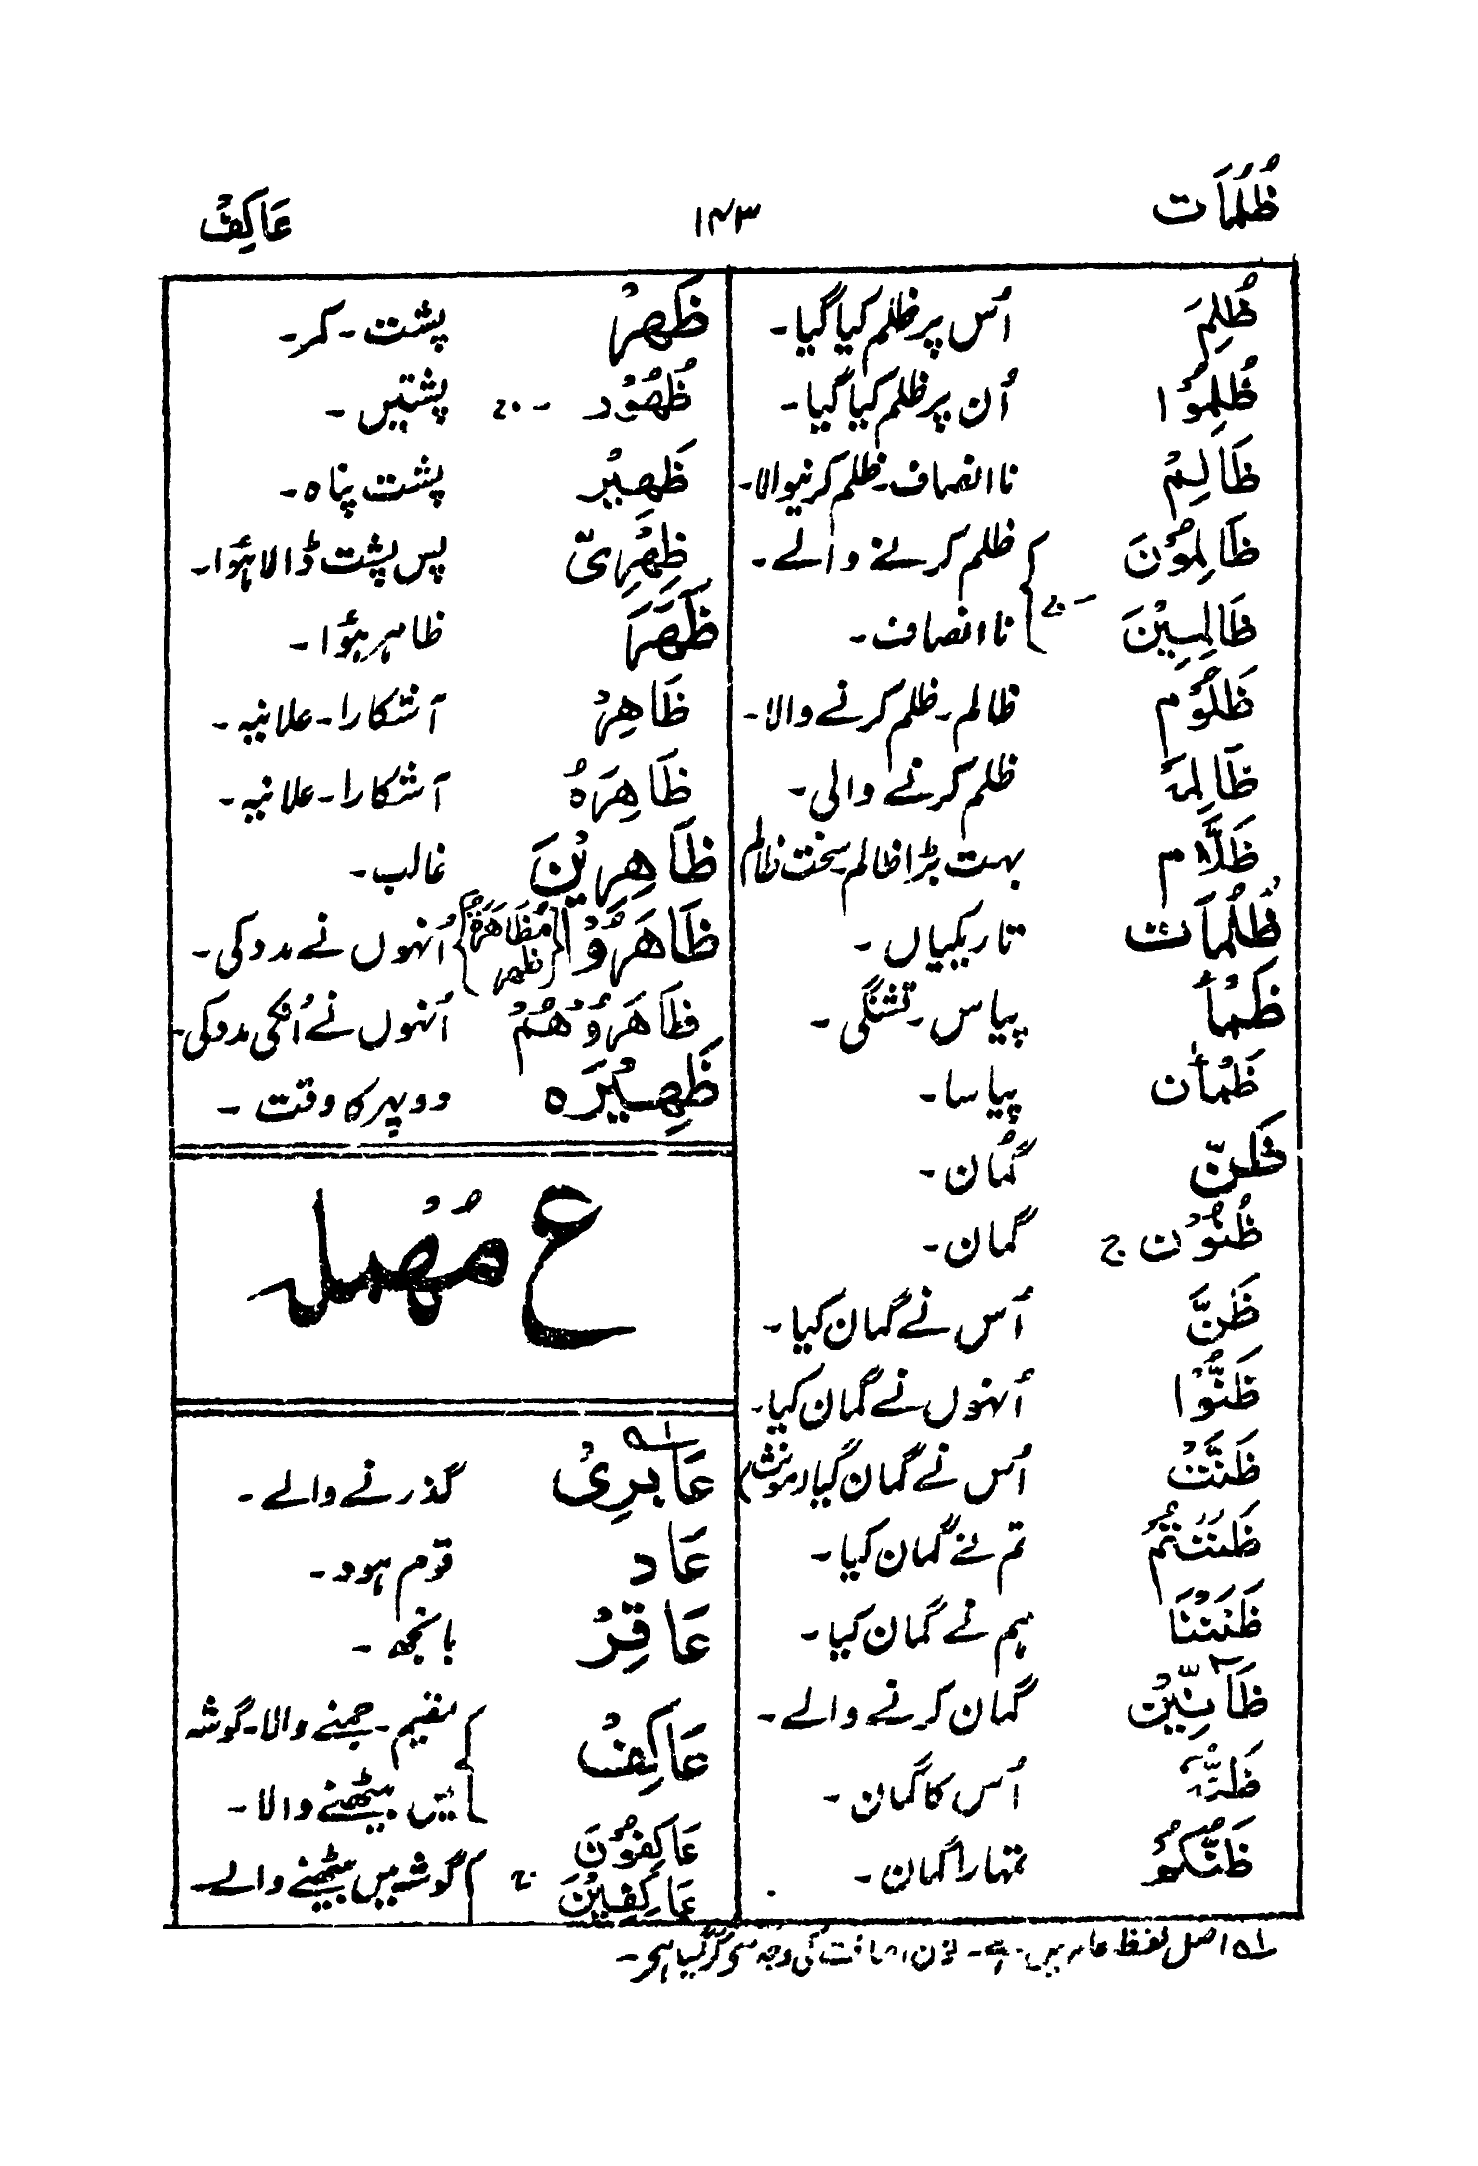 ظُلُمَات
۱۴۳
عَاكِفٌ
ظُلِمَ اُس پر ظلم کیا گیا۔
ظُلِمُوْا اُن پر ظلم کیا گیا۔
ظَالِمٌ نا انصاف۔ ظلم کرنیوالا۔
ظَالِمُوْنَ ظلم کرنے والے۔
ظَالِمِيْنَ نا انصاف۔
ظَلُوْم ظالم۔ ظلم کرنے والا۔
ظَالِمَه ظلم کرنے والی۔
ظَلَّام بہت بڑا ظالم۔ سخت ظالم
ظُلُمَات تاریکیاں۔
ظَمَأ پیاس۔ تشنگی۔
ظَمْاٰن پیاسا۔
ظَنّ گُمان۔
ظُنُوْن ج گمان۔
ظَنَّ اُس نے گمان کیا۔
ظَنُّوْا اُنہوں نے گمان کیا۔
ظَنَّتْ اُس نے گمان کیا (مونث)
ظَنَنْتُمْ تم نے گمان کیا۔
ظَنَنَّا ہم نے گمان کیا۔
ظَآنِّيْن گمان کرنے والے۔
ظَنُّهٗ اُس کا گمان۔
ظَنُّكُمْ تمہارا گمان۔
ظَهْرٌ پشت۔ کمر۔
ظُهُوْر ۔ ج پشتیں۔
ظَهِيْر پشت پناہ۔
ظِهْرِيّ پس پشت ڈالا ہوا۔
ظَهَرَ ظاہر ہوا۔
ظَاهِرٌ آشکارا۔ علانیہ۔
ظَاهِرَةٌ آشکارا۔ علانیہ۔
ظَاهِرِيْنَ غالب۔
ظَاهَرُوْا {مُظَاهَرَةٌ ظهر} اُنہوں نے مدد کی۔
ظَاهَرُوْهُمْ اُنہوں نے اُنکی مدد کی۔
ظَهِيْرَه دوپہر کا وقت۔
ع مُهْمله
عَابِرِيْ ۱ه گذرنے والے۔
عَاد قوم ہود۔
عَاقِرٌ بانجھ۔
عَاكِفٌ مقیم۔ جمنے والا۔ گوشہ
میں بیٹھنے والا۔
عَاكِفُوْنَ
عَاكِفِيْنَ ج گوشہ میں بیٹھنے والے۔
۱ه اصل لفظ عابرین ہے۔ نون اضافت کی وجہ سے گر گیا ہے۔